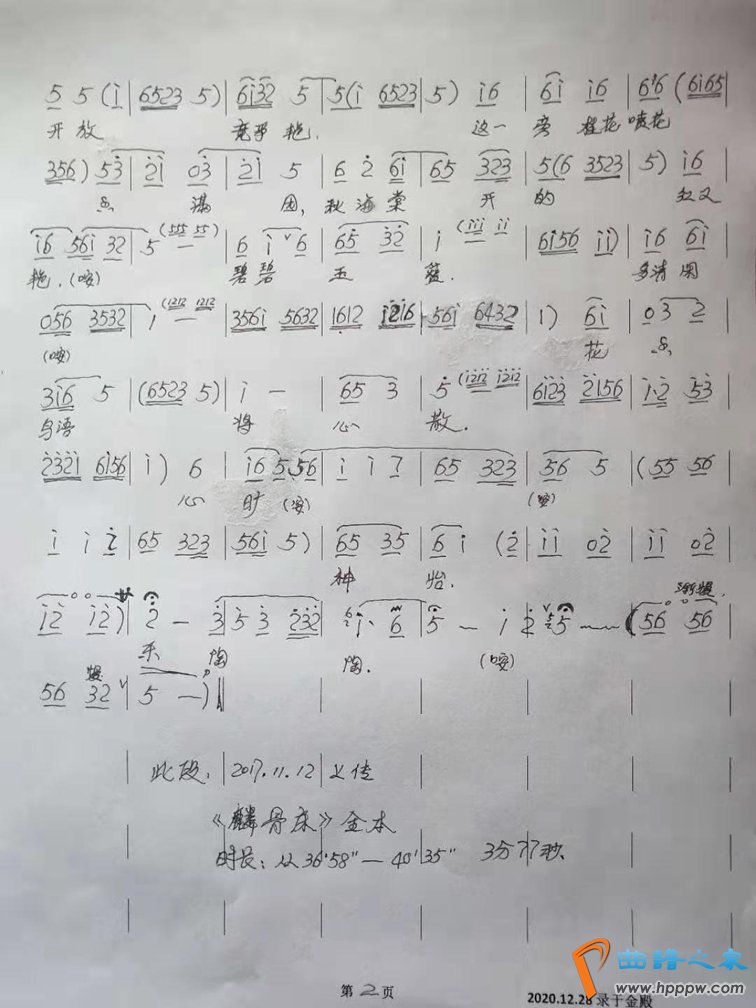 5 5 (i | 6523 5) | 6i32 5 | 5(i 6523 | 5) i6 | 6i i6 | 6i6 (6i65
开放 竞争艳. 这一旁桂花喷花
356) 53 | 2i 03 | 2i 5 | 6 2 6i | 65 323 | 5(6 3523 | 5) i6
香满园, 秋海棠开的红又
i6 56i 32 | 5 — | 6 i 6 | 65 32 | i | 6i56 ii) | i6 6i
艳. (哎) 碧碧玉蓝. 多清闲
056 3532 | i — | 356i 5632 | 1612 i2i6 | 56i 6432 | i) 6i | 03 2
(哎) 花香
3i6 5 | (6523 5) | i — | 65 3 | 5 (i2i2 i2i2 | 6i23 2i56 | i·2 53
鸟语将心散.
2321 6i56 | i) 6 | i6 5 56 | i i 7 | 65 323 | 56 5 | (55 56
心时 (哎) (哎)
i i 2 | 65 323 | 56i 5) | 65 35 | 6 i (2 | ii 02 | ii 02
神怡.
i2 i2) | 2 — 3 | 5 3 232 | i· 6 | 5 — i | 2 5 — | (56 56
渐慢.
乐陶陶. (哎)
慢
56 32 | 5 —)
此段: 2017.11.12 上传
《麟骨床》金本
时长: 从36'58" — 40'35" 3分37秒
第2页
2020.12.28 录于金殿
曲谱之家
www.hppw.com